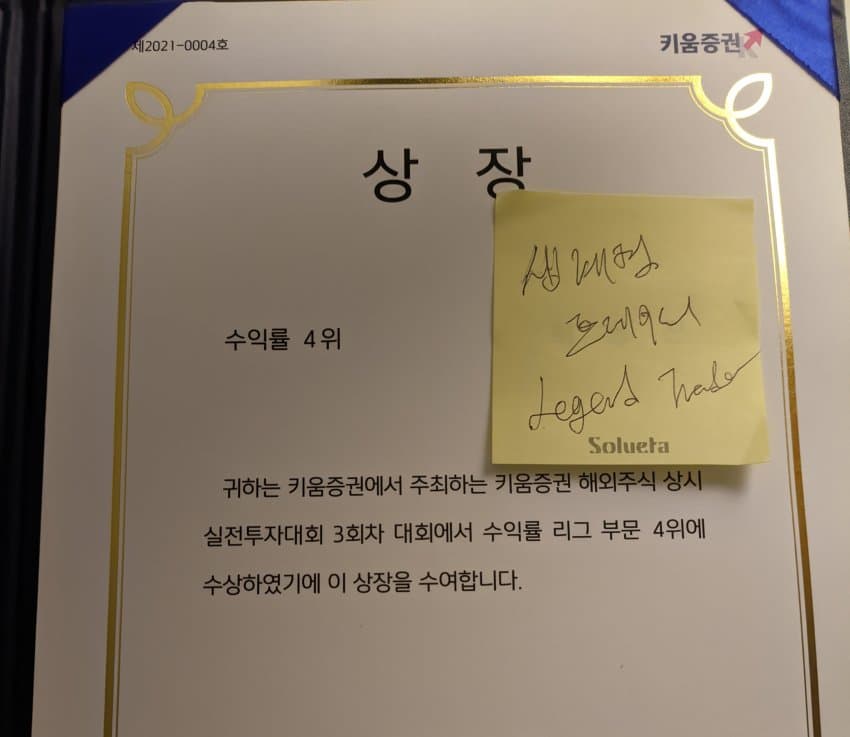 제2021-0004호
키움증권
상 장
수익률 4위
Legend Trader
Solueta
귀하는 키움증권에서 주최하는 키움증권 해외주식 상시
실전투자대회 3회차 대회에서 수익률 리그 부문 4위에
수상하였기에 이 상장을 수여합니다.